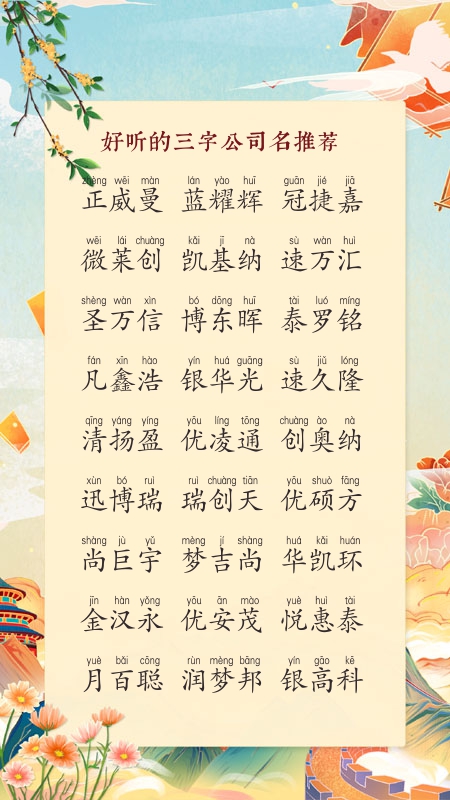 好听的三字公司名推荐
zhèng wēi màn lán yào huī guān jié jiā
正威曼 蓝耀辉 冠捷嘉
wēi lái chuàng kǎi jī nà sù wàn huì
微莱创 凯基纳 速万汇
shèng wàn xìn bó dōng huī tài luó míng
圣万信 博东晖 泰罗铭
fán xīn hào yín huá guāng sù jiǔ lóng
凡鑫浩 银华光 速久隆
qīng yáng yíng yōu líng tōng chuàng ào nà
清扬盈 优凌通 创奥纳
xùn bó ruì ruì chuàng tiān yōu shuò fāng
迅博瑞 瑞创天 优硕方
shàng jù yǔ mèng jí shàng huá kǎi huán
尚巨宇 梦吉尚 华凯环
jīn hàn yǒng yōu ān mào yuè huì tài
金汉永 优安茂 悦惠泰
yuè bǎi cōng rùn mèng bāng yín gāo kē
月百聪 润梦邦 银高科